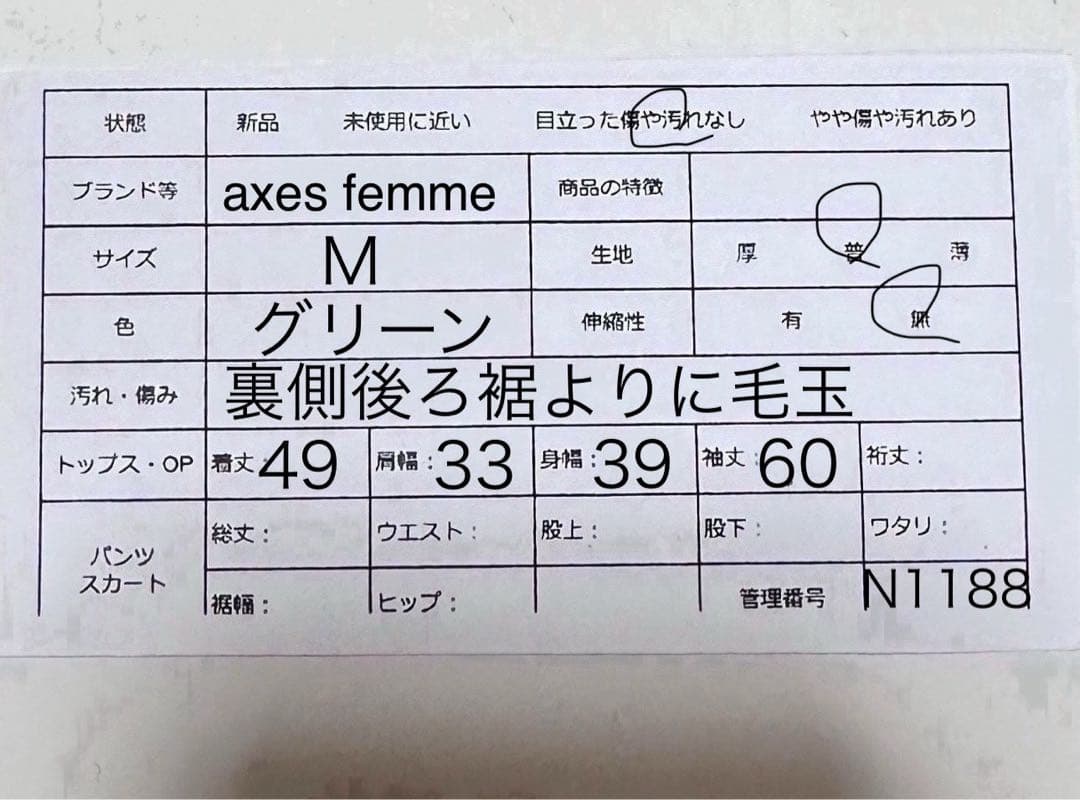 状態 新品 未使用に近い 目立った傷や汚れなし やや傷や汚れあり
ブランド等 axes femme 商品の特徴
サイズ M 生地 厚 普 薄
色 グリーン 伸縮性 有 無
汚れ・傷み 裏側後ろ裾よりに毛玉
トップス・OP 着丈:49 肩幅:33 身幅:39 袖丈:60 裄丈:
パンツ
スカート
総丈: ウエスト: 股上: 股下: ワタリ:
裾幅: ヒップ: 管理番号 N1188